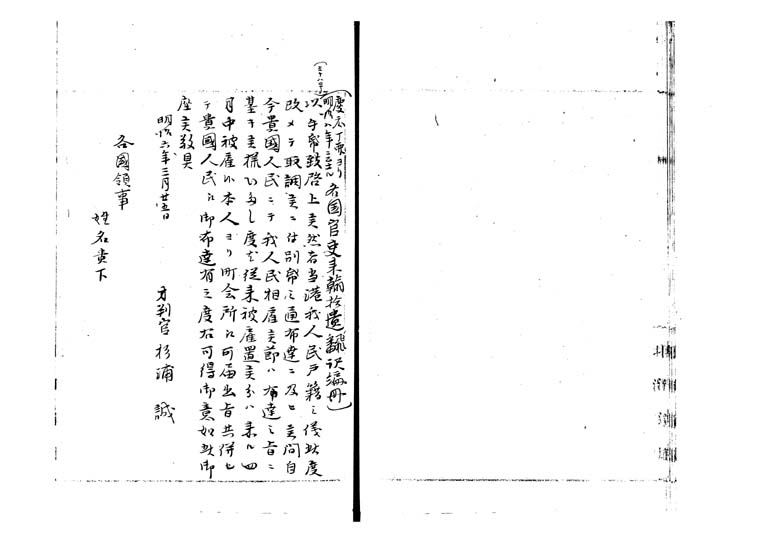 (三十八号)
(慶応丁卯ヨリ
明治八年ニ至ル 各国官吏来翰拾遺飜訳編冊)
以手翰致啓上候然者当港我人民戸籍之儀此度
改メテ取調候ニ付別紙之通布達ニ及ヒ候間自
今貴國人民ニテ我人民相雇候節ハ布達之旨ニ
基キ候様いたし度尤従来被雇置候分ハ来ル四
月中被雇候本人ヨリ町会所江可届出旨共併セ
テ貴國人民江御布達有之度右可得御意如此御
座候敬具
明治六年三月廿五日
判官杉浦 誠
各國領事
姓名貴下